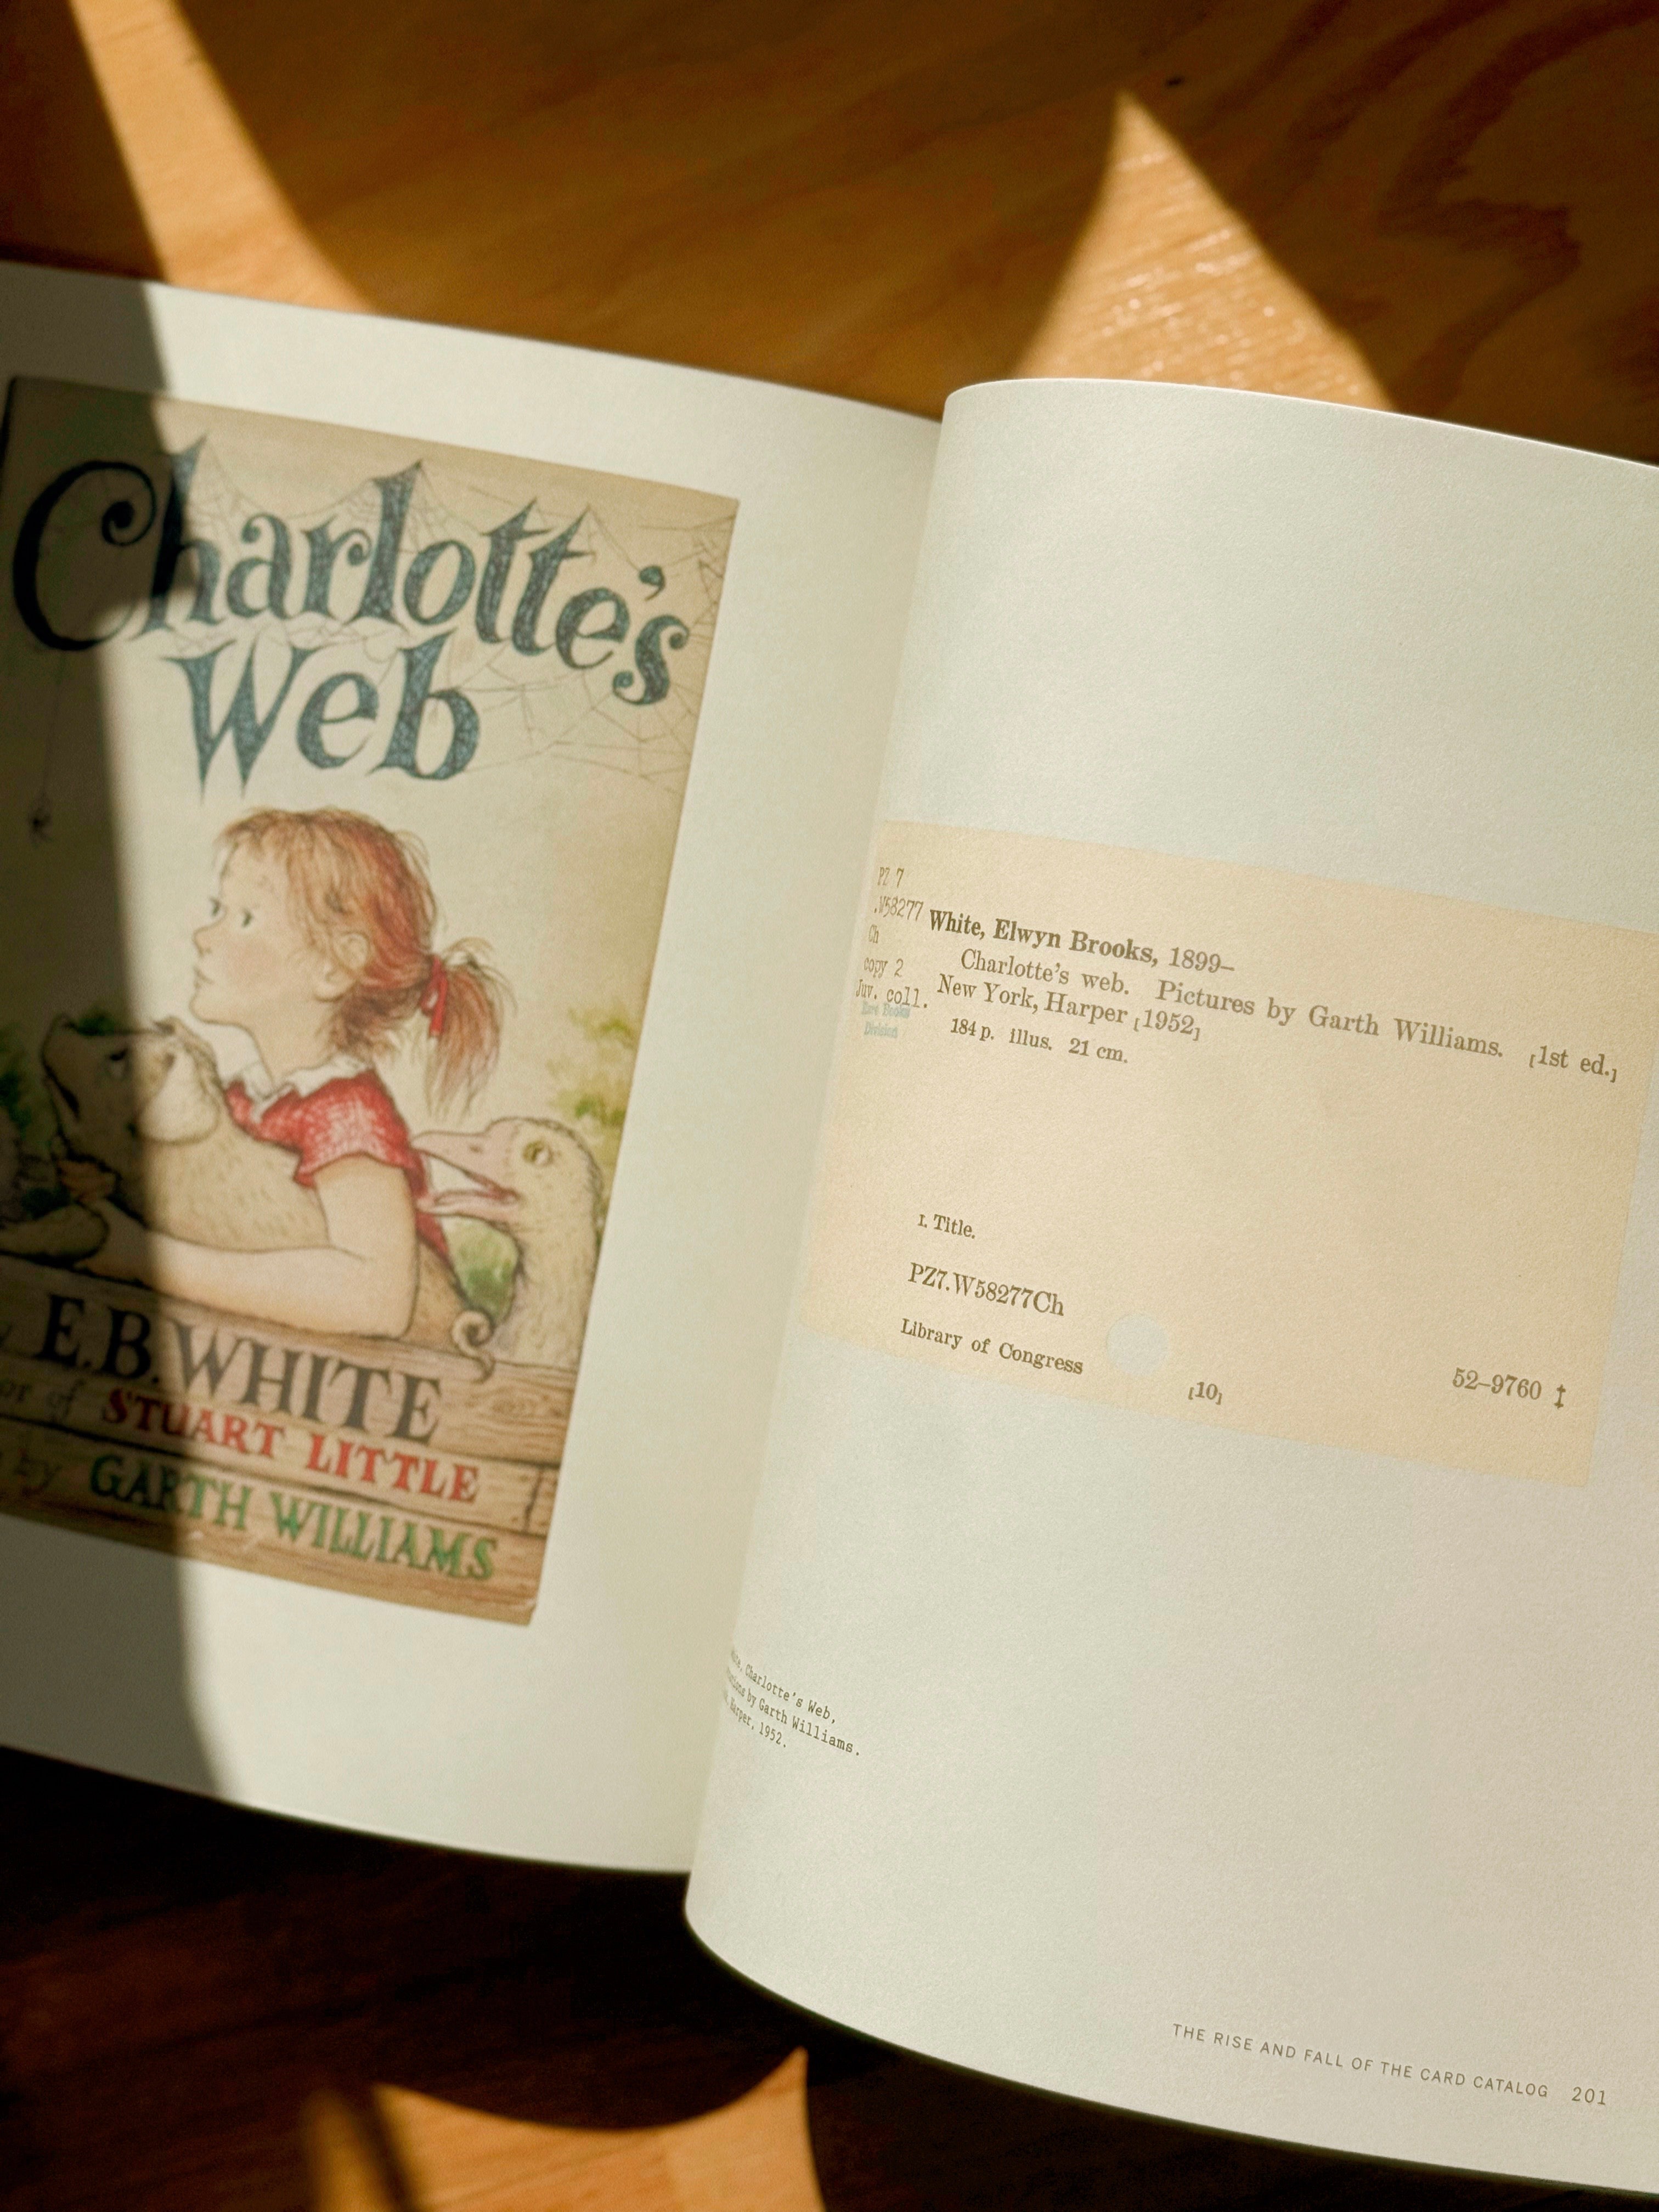 Charlotte's
Web
E.B. WHITE
of STUART LITTLE
by GARTH WILLIAMS
PZ 7
.W58277
Ch
copy 2
Juv. coll.
Rare Books
Division
White, Elwyn Brooks, 1899–
Charlotte's web. Pictures by Garth Williams. [1st ed.]
New York, Harper [1952]
184 p. illus. 21 cm.
I. Title.
PZ7.W58277Ch
Library of Congress
[10]
52–9760 ‡
Charlotte's Web,
by Garth Williams.
Harper, 1952.
THE RISE AND FALL OF THE CARD CATALOG 201